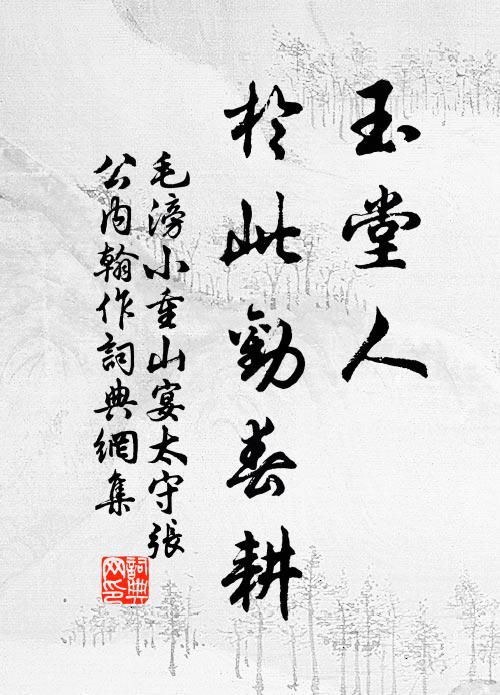 玉堂人
於此勸春耕
毛滂小重山宴太守張
公內翰作詞典網集
詞典
网印